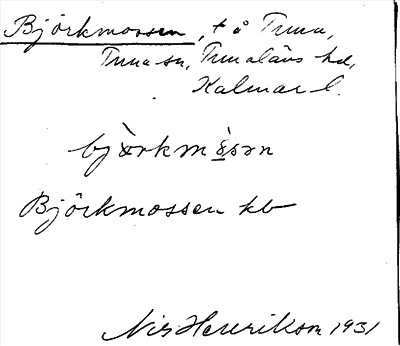 Björkmossen, t å Tuna,
Tuna sn, Tunaläns hd,
Kalmar l.
bjòrkmòsən
Björkmossen kb
Nils Henrikson 1931